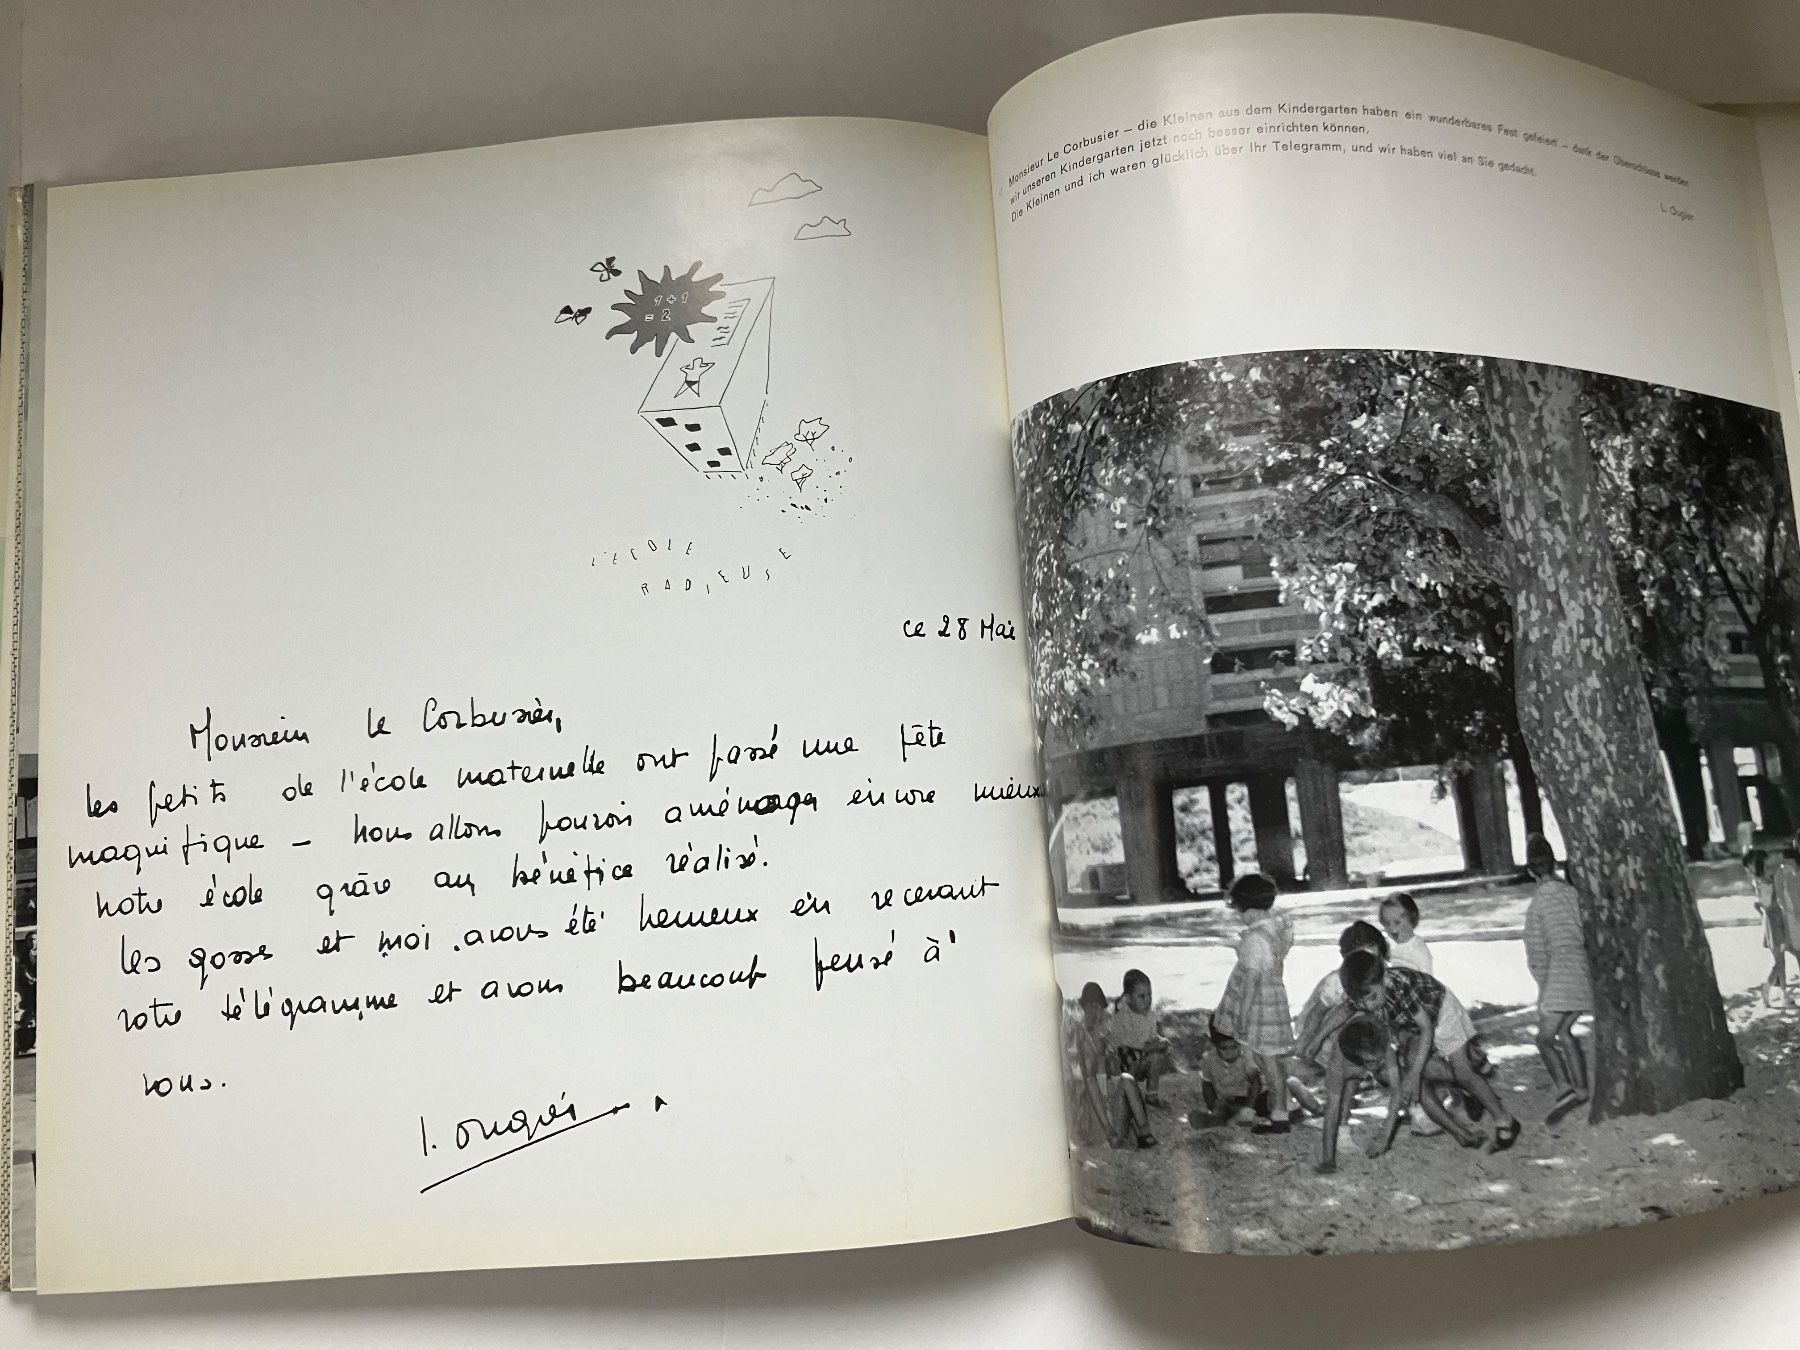 1+1
= 2
L'ECOLE
RADIEUSE
ce 28 Mai
Monsieur Le Corbusier,
les petits de l'école maternelle ont passé une fête
magnifique – nous allons pouvoir aménager encore mieux
notre école grâce au bénéfice réalisé.
Les gosses et moi avons été heureux en recevant
votre télégramme et avons beaucoup pensé à
vous.
L. Ougier
Monsieur Le Corbusier – die Kleinen aus dem Kindergarten haben ein wunderbares Fest gefeiert – dank der Überschüsse werden
wir unseren Kindergarten jetzt noch besser einrichten können.
Die Kleinen und ich waren glücklich über Ihr Telegramm, und wir haben viel an Sie gedacht.
L. Ougier